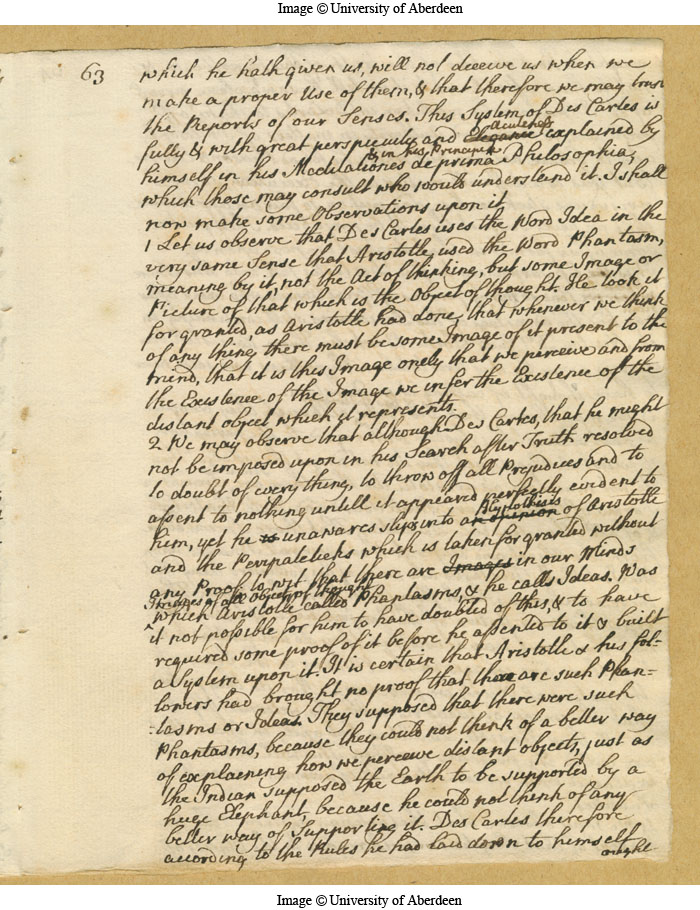 Image © University of Aberdeen
63
which he hath given us, will not deceive us when we
make a proper Use of them, & that therefore we may trust
the Reports of our Senses. This System of Des Cartes is
Acuteness
fully & with great perspicuity and Elegance explained by
& in his Principia
himself in his Meditationes de prima Philosophia,
which those may consult who would understand it. I shall
now make some Observations upon it
1 Let us observe that Des Cartes uses the Word Idea in the
very same Sense that Aristotle used the Word Phantasm,
meaning by it, not the Act of thinking, but some Image or
Picture of that which is the Object of thought. He took it
for granted, as Aristotle had done, that whenever we think
of any thing there must be some Image of it present to the
mind, that it is this Image onely that we perceive and from
the Existence of the Image we infer the Existence of the
distant object which it represents.
2 We may observe that although Des Cartes, that he might
not be imposed upon in his Search after Truth resolved
to doubt of every thing, to throw off all Prejudices and to
assent to nothing untill it appeared perfectly evident to
Hypothesis
him, yet he is unawares slips into an opinion of Aristotle
and the Peripateticks which is taken for granted without
any Proof to wit that there are Images in our Minds
Images of all objects of thought
which Aristotle called Phantasms, & he calls Ideas. Was
it not possible for him to have doubted of this, & to have
required some proof of it before he assented to it & built
a System upon it. It is certain that Aristotle & his fol-
lowers had brought no proof that there are such Phan-
-tasms or Ideas. They supposed that there were such
Phantasms, because they could not think of a better way
of explaining how we perceive distant objects, just as
the Indian supposed the Earth to be supported by a
huge Elephant, because he could not think of any
better way of Supporting it. Des Cartes therefore
according to the Rules he had laid down to himself
ought
Image © University of Aberdeen